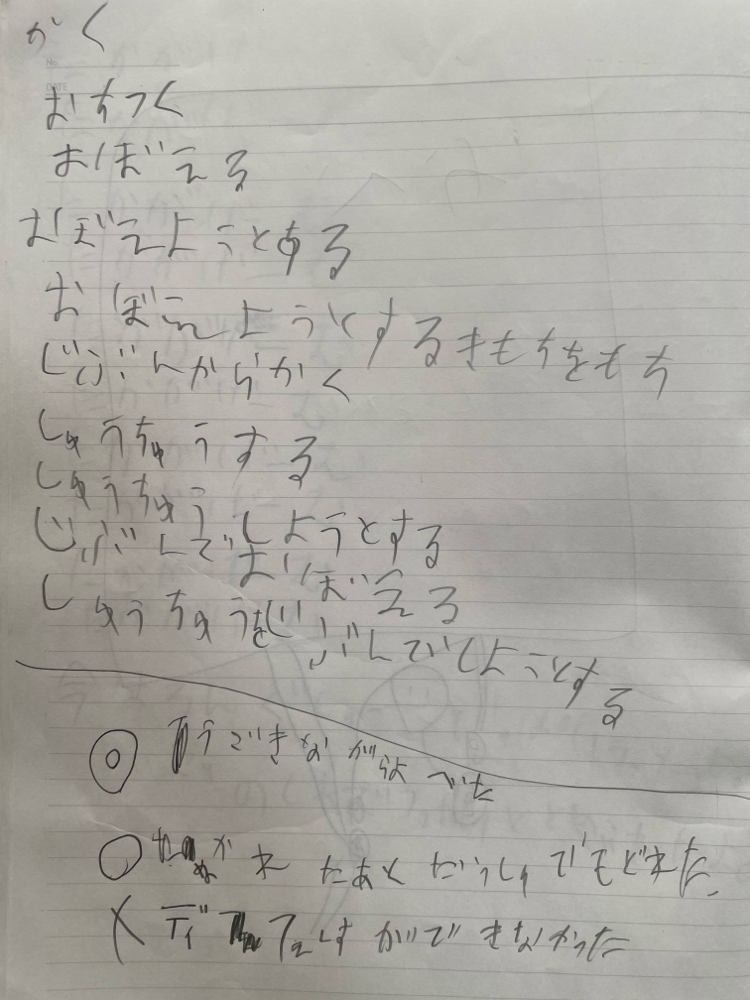 かく
おちつく
おぼえる
おぼえようとする
おぼえようとするきもちをもち
じぶんからかく
しゅうちゅうする
しゅうちゅう
じぶんでしようとする
おぼえる
しゅうちゅうをじぶんでしようとする
◎ うごきながら よべた
○ ぬかれたあと だっしゅでもどれた。
× ディフェンすができなかった